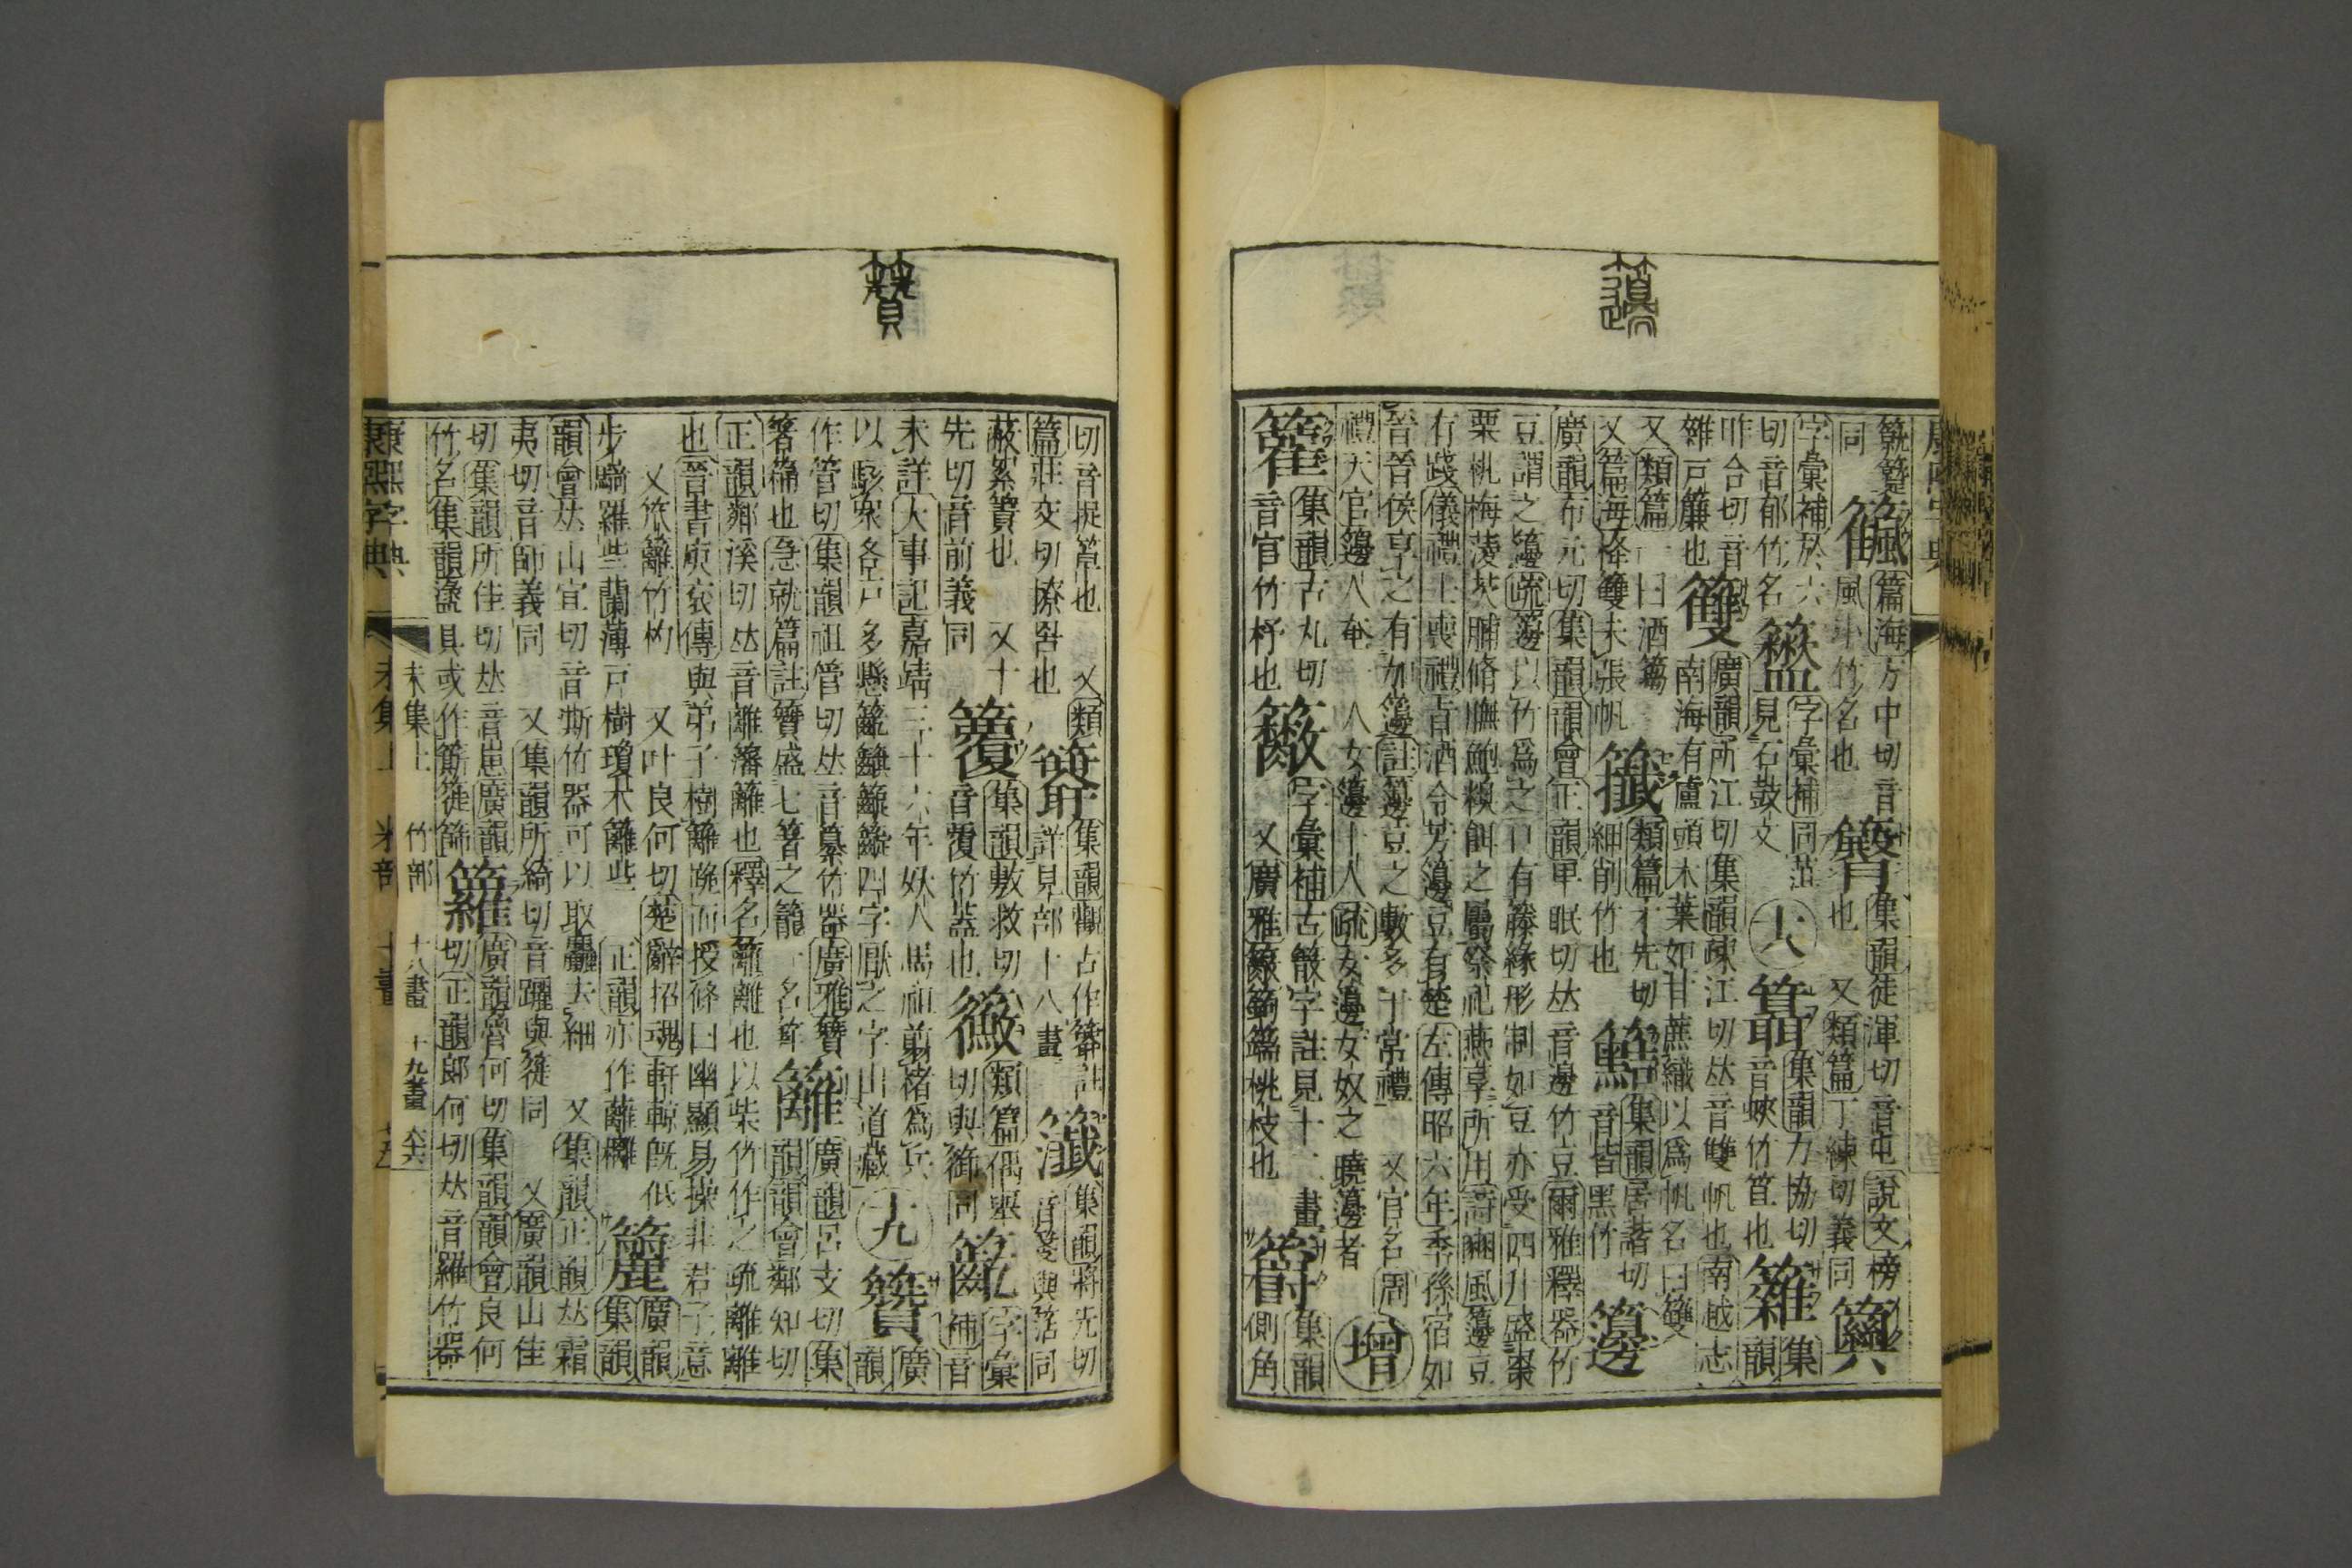 同
篇海方中切音風小竹名也
集韻徒渾切音屯說文榜也 又類篇丁練切義同
字彙補於六切音郁竹名
字彙補同 見石鼓文 十八
集韻力協切音峽竹笪也
集韻
咋合切音雜戸簾也 䉶 廣韻所江切集韻疎江切𠀤音雙帆也南越志南海有盧頭木葉如甘蔗織以爲帆名曰䉶
又類篇一曰酒篘 又篇海䉶未張帆 籤 類篇才先切細削竹也 集韻居諧切音皆黑竹 籩
廣韻布元切集韻韻會正韻𤰞眠切𠀤音邊竹豆爾雅釋器竹豆謂之籩疏籩以竹爲之口有籐緣形制如豆亦受四升盛棗
栗桃梅菱芡脯脩膴鮑糗餌之屬祭祀燕享所用詩豳風籩豆有踐儀禮士喪禮旨酒令芳籩豆有楚左傳昭六年季孫宿如
晉晉侯享之有加籩註籩豆之數多于常禮 又官名周禮天官籩人奄一人女籩十人疏女籩女奴之曉籩者 增
集韻古丸切音官竹杼也 字彙補古 字註見十一畫 又廣雅 桃枝也 集韻側角
切音捉箪也 又類篇莊交切撩罟也 詳見部十八畫 集韻將先切
蔽絮簀也 又十先切音前義同 集韻敷救切音覆竹蓋也 類篇偶舉切與御同 字彙補音
未詳大事記嘉靖三十六年妖人馬祖剪楮爲兵以駭衆各戸多懸 四字厭之字出道藏 十九 籫 廣韻
作管切集韻祖管切𠀤音纂竹器廣雅籫箸筩也急就篇註籫盛匕箸之籠一名筯 籬 廣韻呂支切集韻韻會鄰知切
正韻鄰溪切𠀤音離籓籬也釋名籬離也以柴竹作之疏離離也晉書庾袞傳與弟子樹籬跪而授條曰幽顯易操非君子意
又笊籬竹杓 又叶良何切楚辭招魂軒輬旣低步騎羅些蘭薄戸樹瓊木籬些 正韻亦作蘺欐 籭 廣韻集韻
韻會𠀤山宜切音斯竹器可以取麤去細 又集韻正韻𠀤霜夷切音師義同 又集韻所綺切音躧與簁同 又廣韻山佳
切集韻所佳切𠀤音崽廣韻竹名集韻盪具或作簛簁篩 籮 廣韻魯何切集韻韻會良何切正韻郎何切𠀤音羅竹器
康熙字典 未集上 竹部 十八畫 十九畫 六六